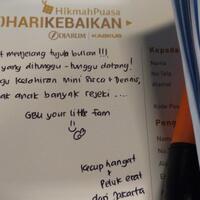 HikmahPuasa
HARIKEBAIKAN
DJARUM KASKUS
t menjelang tujuh bulan !!!
yang ditunggu - tunggu datang!
gu Kelahiran mini Reco & Dennis,
ak anak banyak rejeki ....
GBU your little fam
Kecup hangat
+
Peluk erat
dari Jakarta
Kepada
Nama
No.Tela
Alamat
Kode Pos
Peng